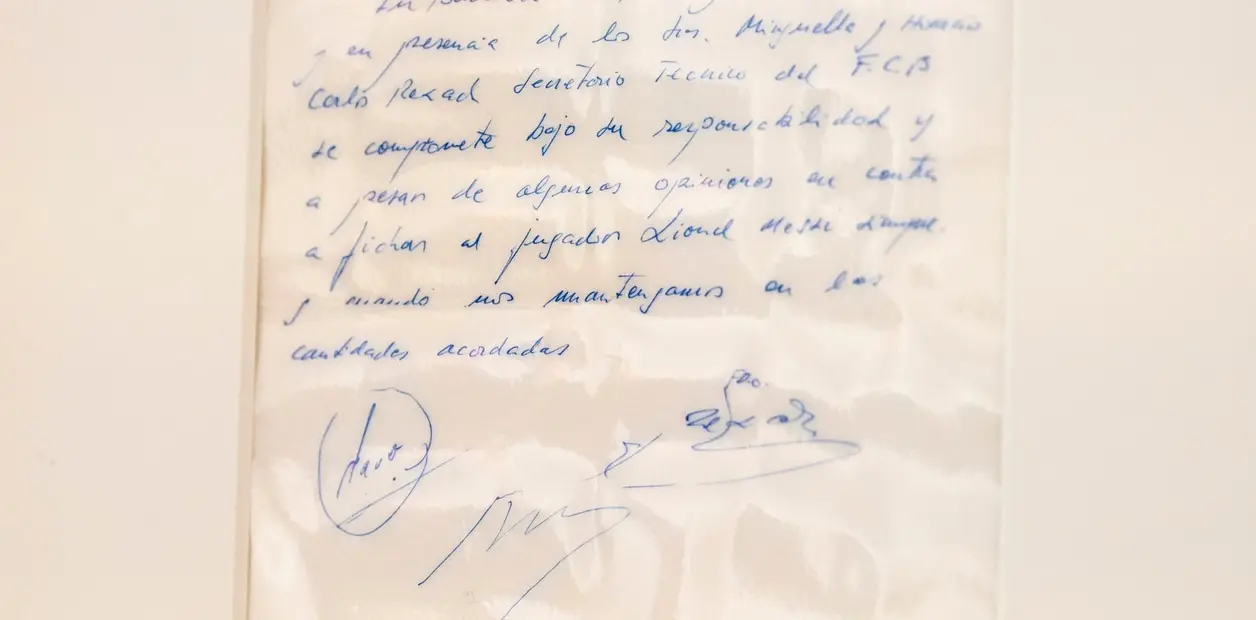 En
y en presencia de los Srs. Minguella y Horacio
Carlos Rexach Secretario Tecnico del F.C.B
se compromete bajo su responsabilidad y
a pesar de algunas opiniones en contra
a fichar al jugador Lionel Messi siempre
y cuando nos mantengamos en las
cantidades acordadas